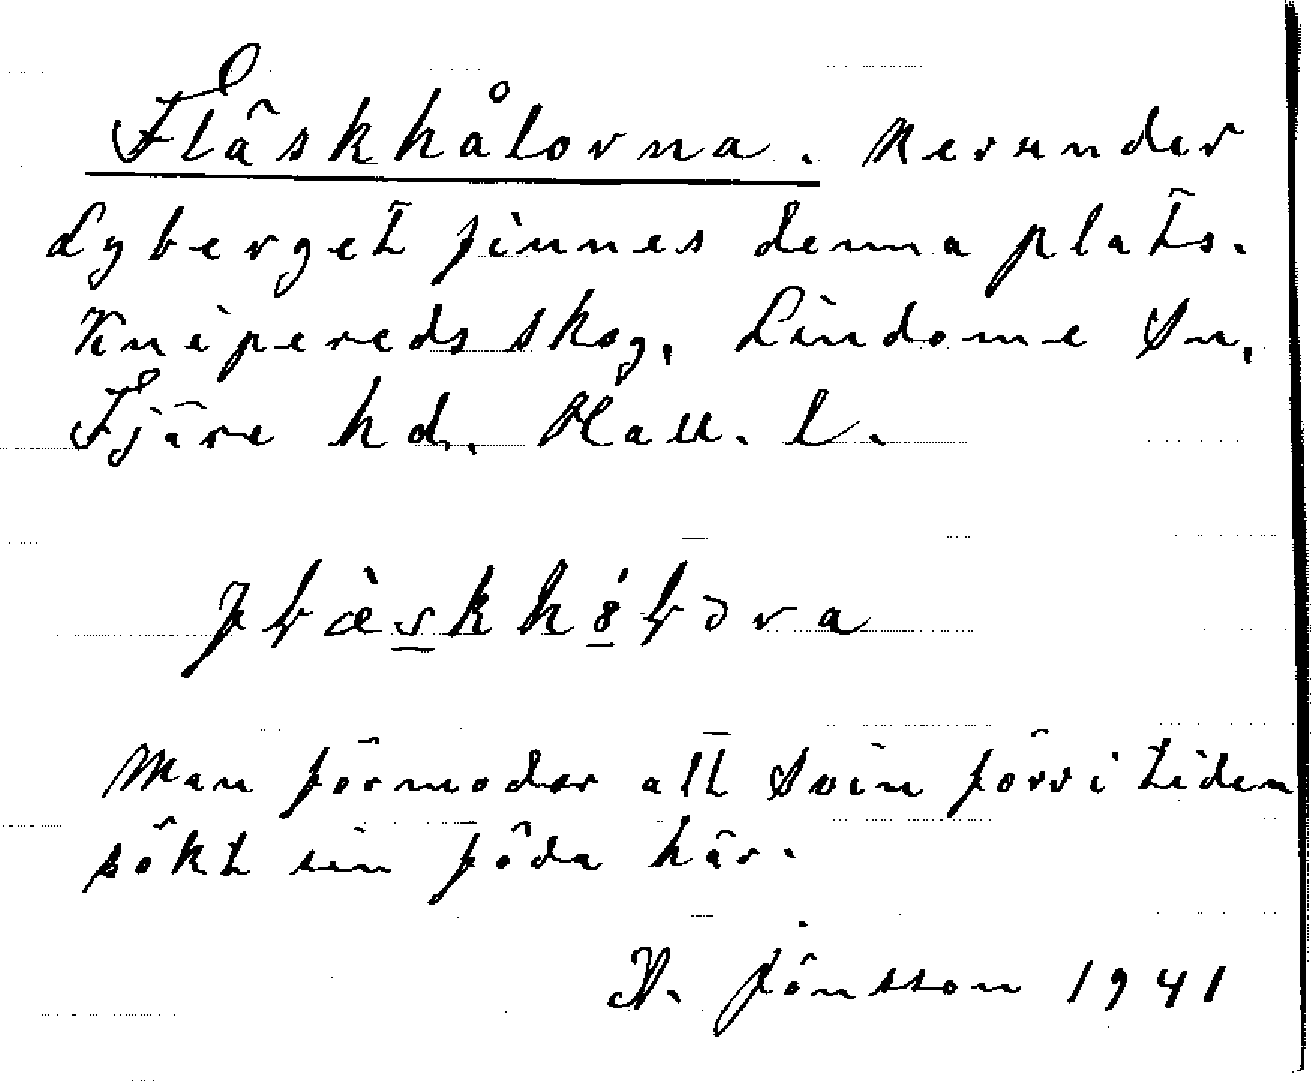 Fläskhålorna. Nerunder
Lyberget finnes denna plats.
Knipereds skog, Lindome Sn,
Fjäre hd. Hall. l.
Man förmodar att Svin förr i tiden
sökt sin föda här.
Jönsson 1941